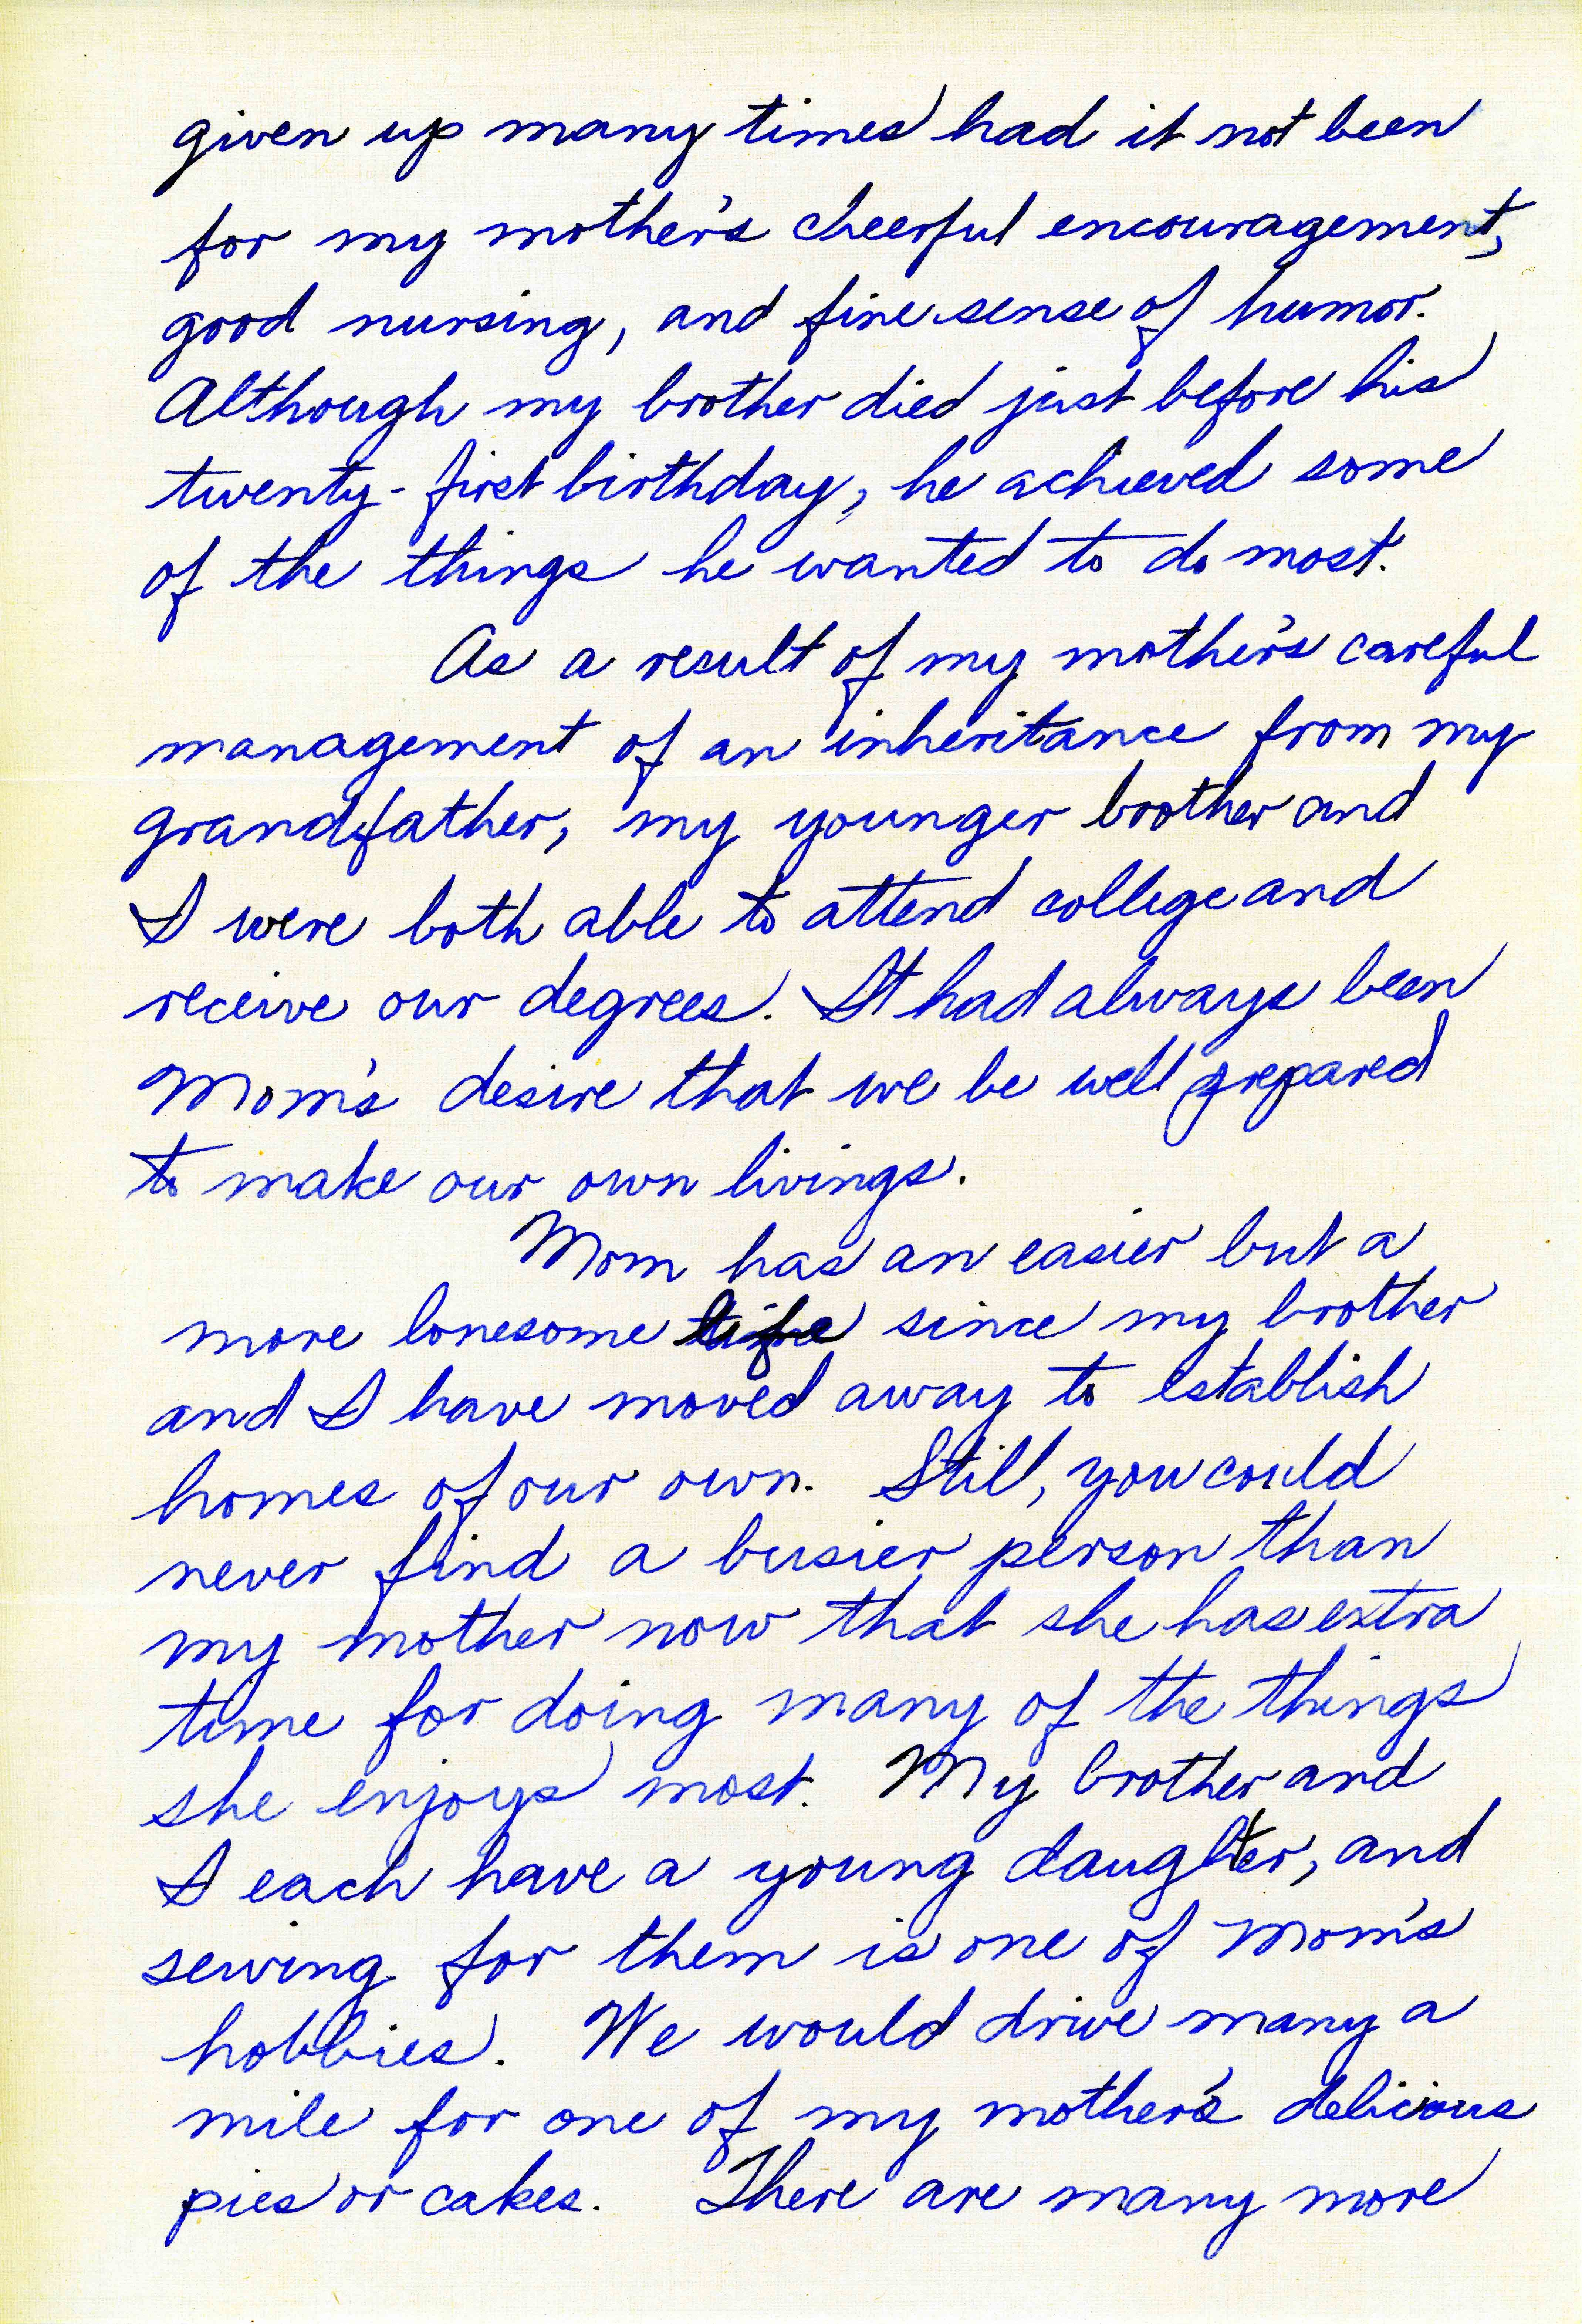 given up many times had it not been
for my mother's cheerful encouragement,
good nursing, and fine sense of humor.
Although my brother died just before his
twenty-first birthday, he achieved some
of the things he wanted to do most.
As a result of my mother's careful
management of an inheritance from my
grandfather, my younger brother and
I were both able to attend college and
receive our degrees. It had always been
Mom's desire that we be well prepared
to make our own livings.
Mom has an easier but a
more lonesome life since my brother
and I have moved away to establish
homes of our own. Still, you could
never find a busier person than
my mother now that she has extra
time for doing many of the things
she enjoys most. My brother and
I each have a young daughter, and
sewing for them is one of Mom's
hobbies. We would drive many a
mile for one of my mother's delicious
pies or cakes. There are many more